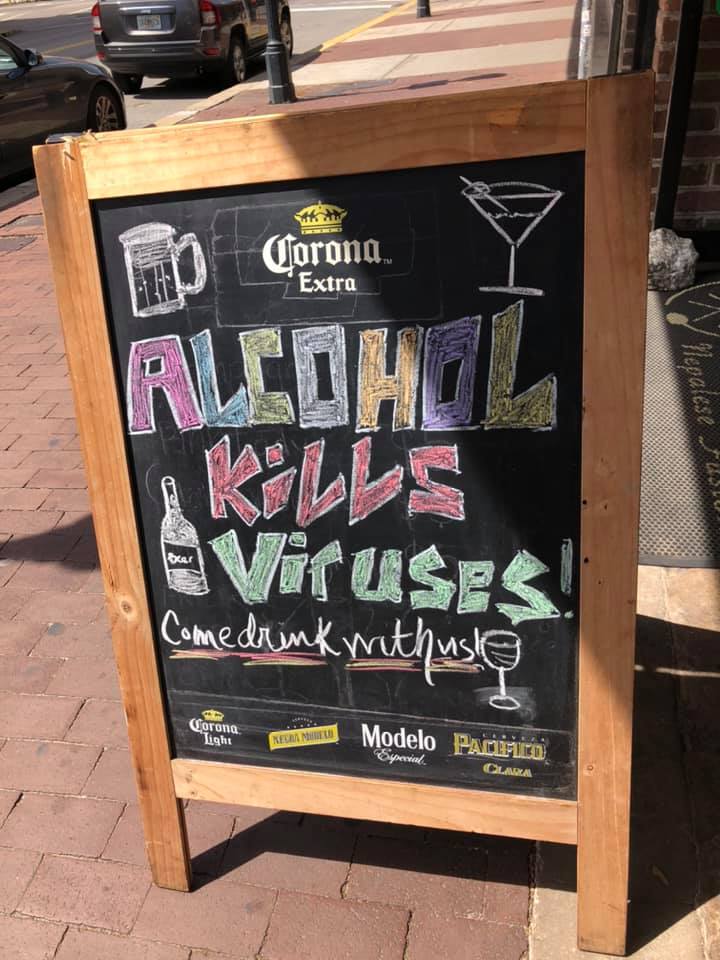 Corona
Extra
ALCOHOL
KiLLS
Viruses!
Beer
Come drink with us!
Corona Light
NEGRA MODELO
Modelo Especial
CERVEZA PACIFICO CLARA
Nepalese